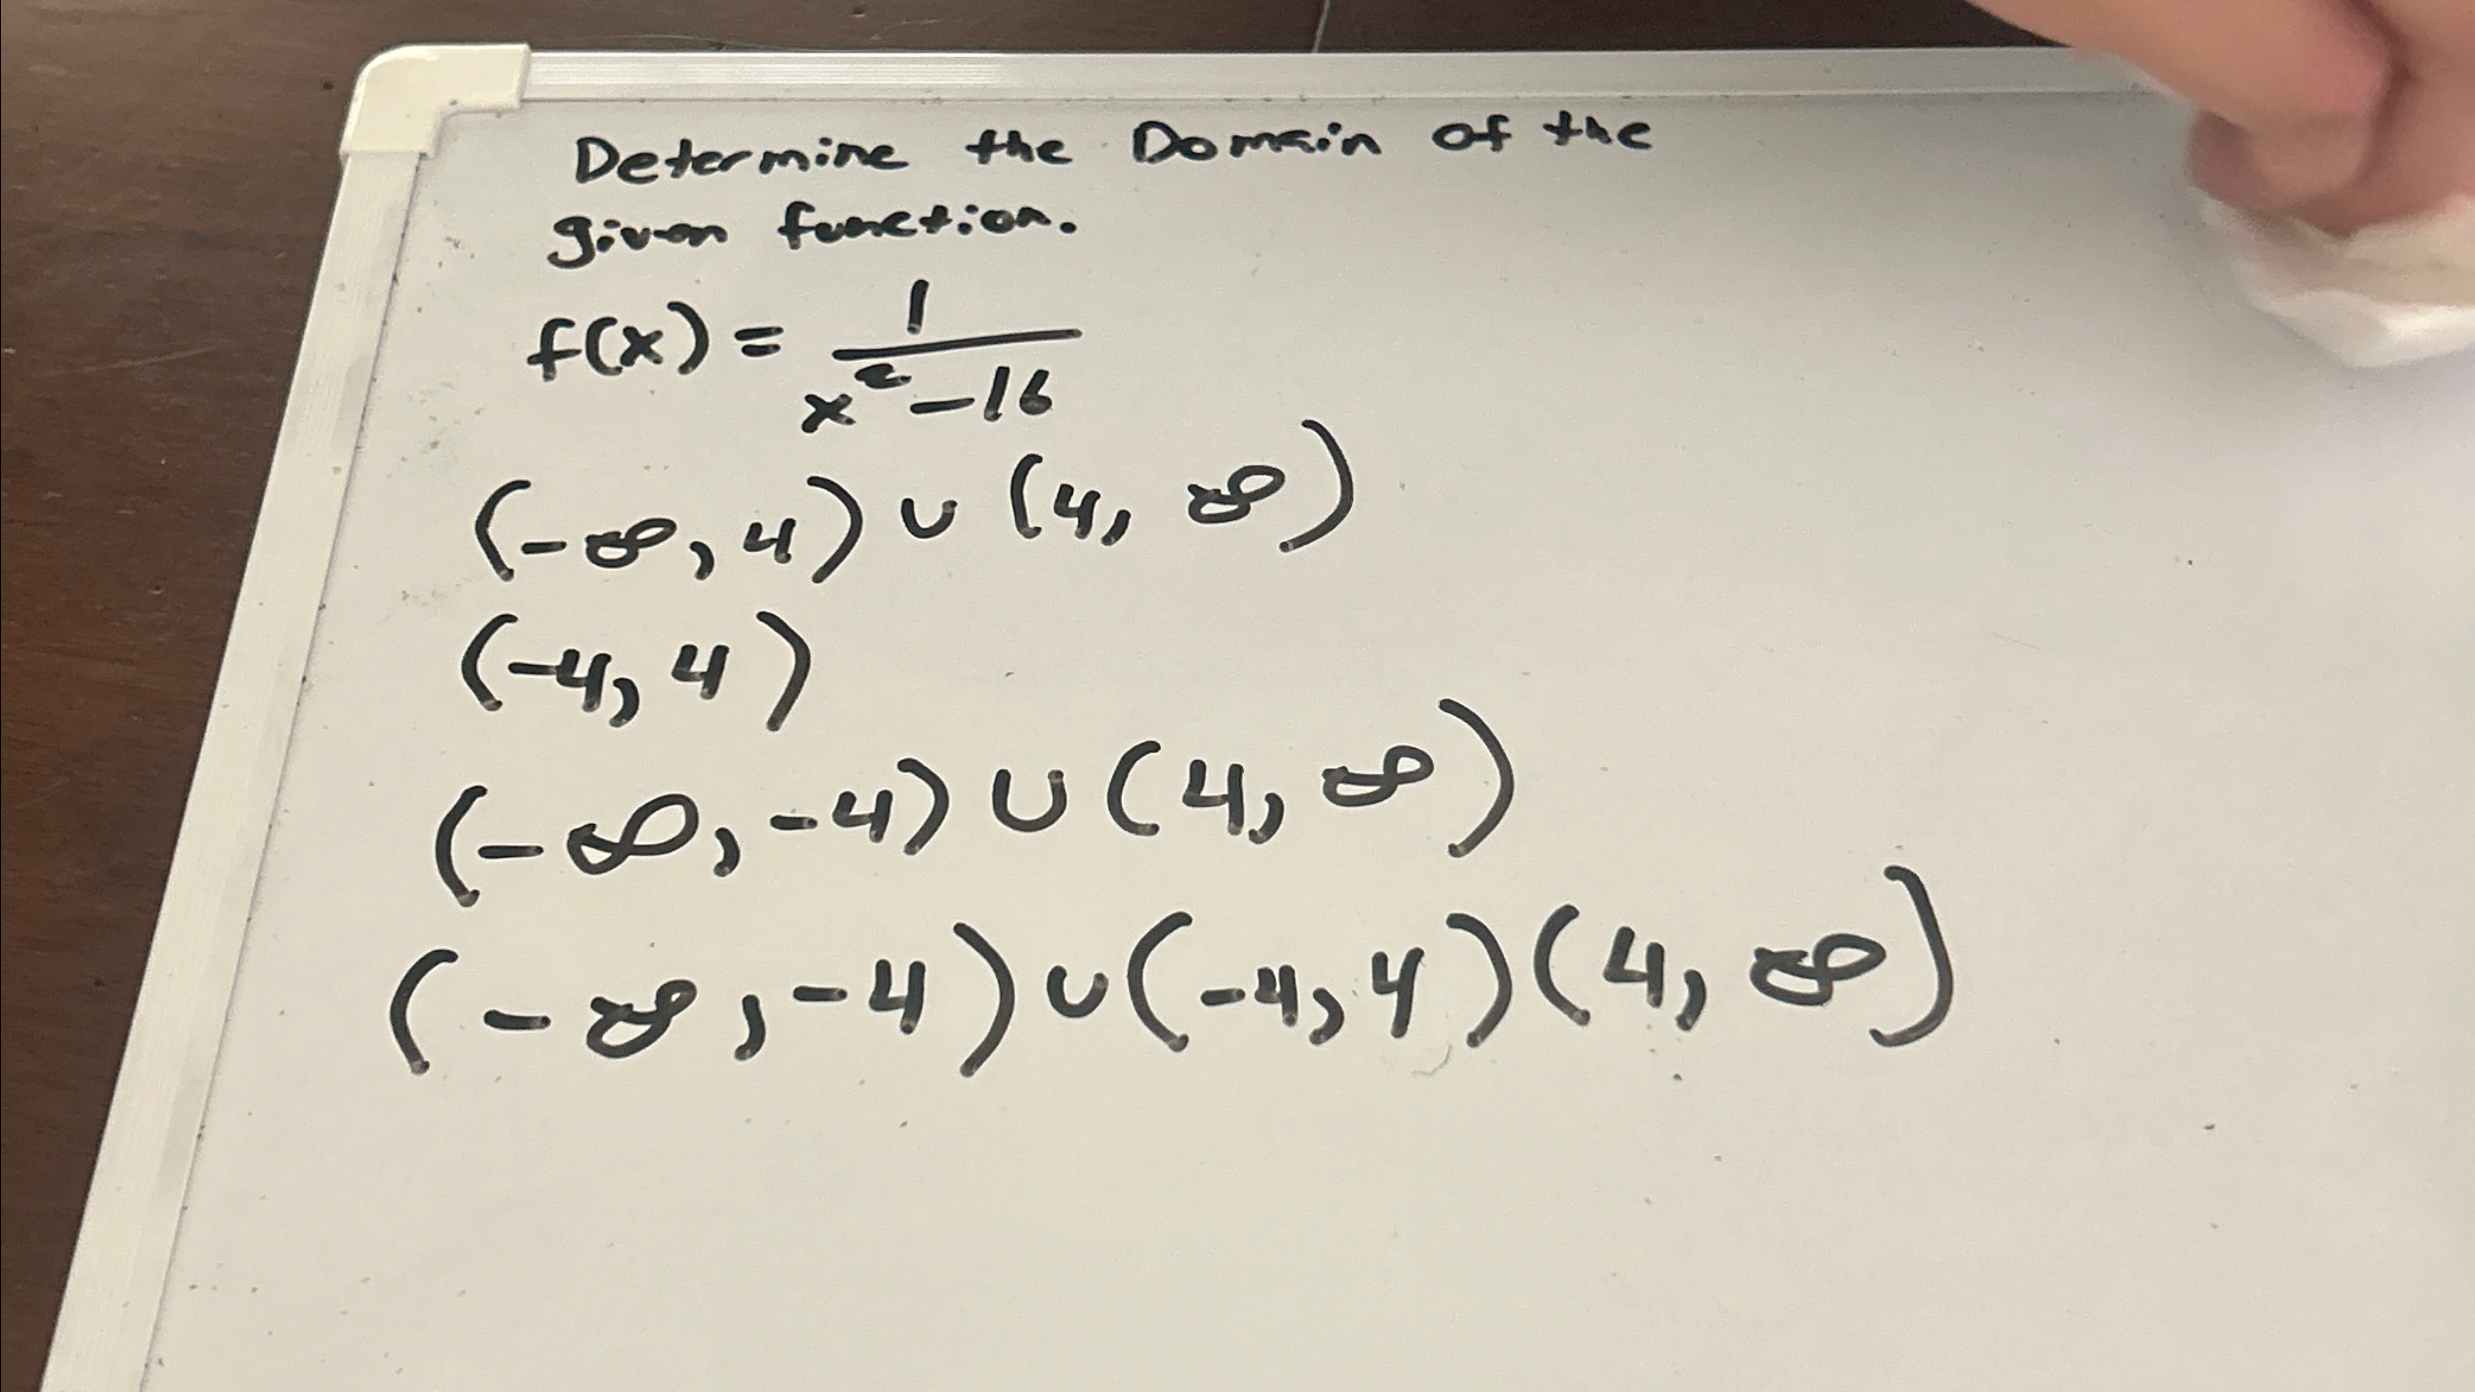 Determine the Domain of the
given function.
f(x) = 1/(x² - 16)
(-∞, 4) ∪ (4, ∞)
(-4, 4)
(-∞, -4) ∪ (4, ∞)
(-∞, -4) ∪ (-4, 4)(4, ∞)